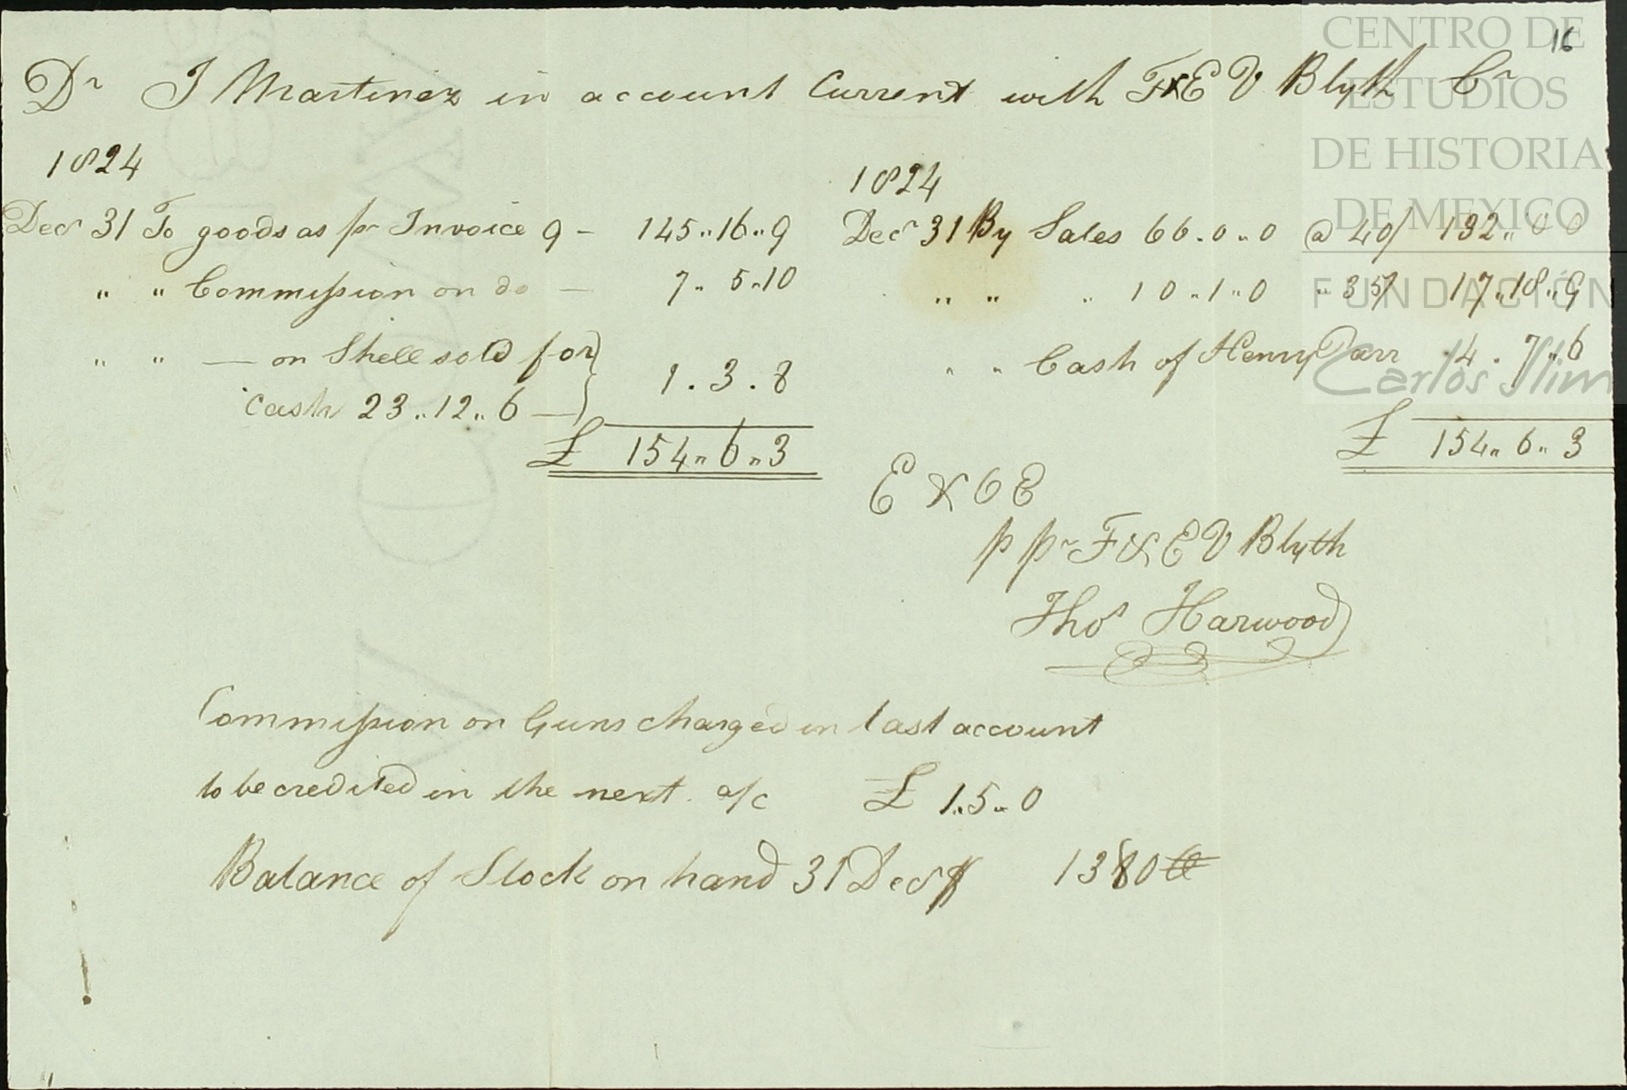 16
Dr J Martinez in account Current with F & E V Blyth Cr
1824
Decr 31 To goods as pr Invoice 9 – 145..16..9
" " Commission on do – 7..5..10
" " — on Shell sold for
Cash 23..12..6 — 1.3.8
£ 154..6..3
1824
Decr 31 By Sales 66.0..0 @ 40/ 132..0 0
" " " 10..1..0 " 35/ 17..18..9
" " Cash of Henry Parr 4.7..6
£ 154..6..3
E & O E
p pr F & E V Blyth
Thos Harwood
Commission on Guns charged in last account
to be credited in the next a/c £ 1..5..0
Balance of Stock on hand 31 Decr 1380 lb
CENTRO DE
ESTUDIOS
DE HISTORIA
DE MEXICO
FUNDACIÓN
Carlos Slim